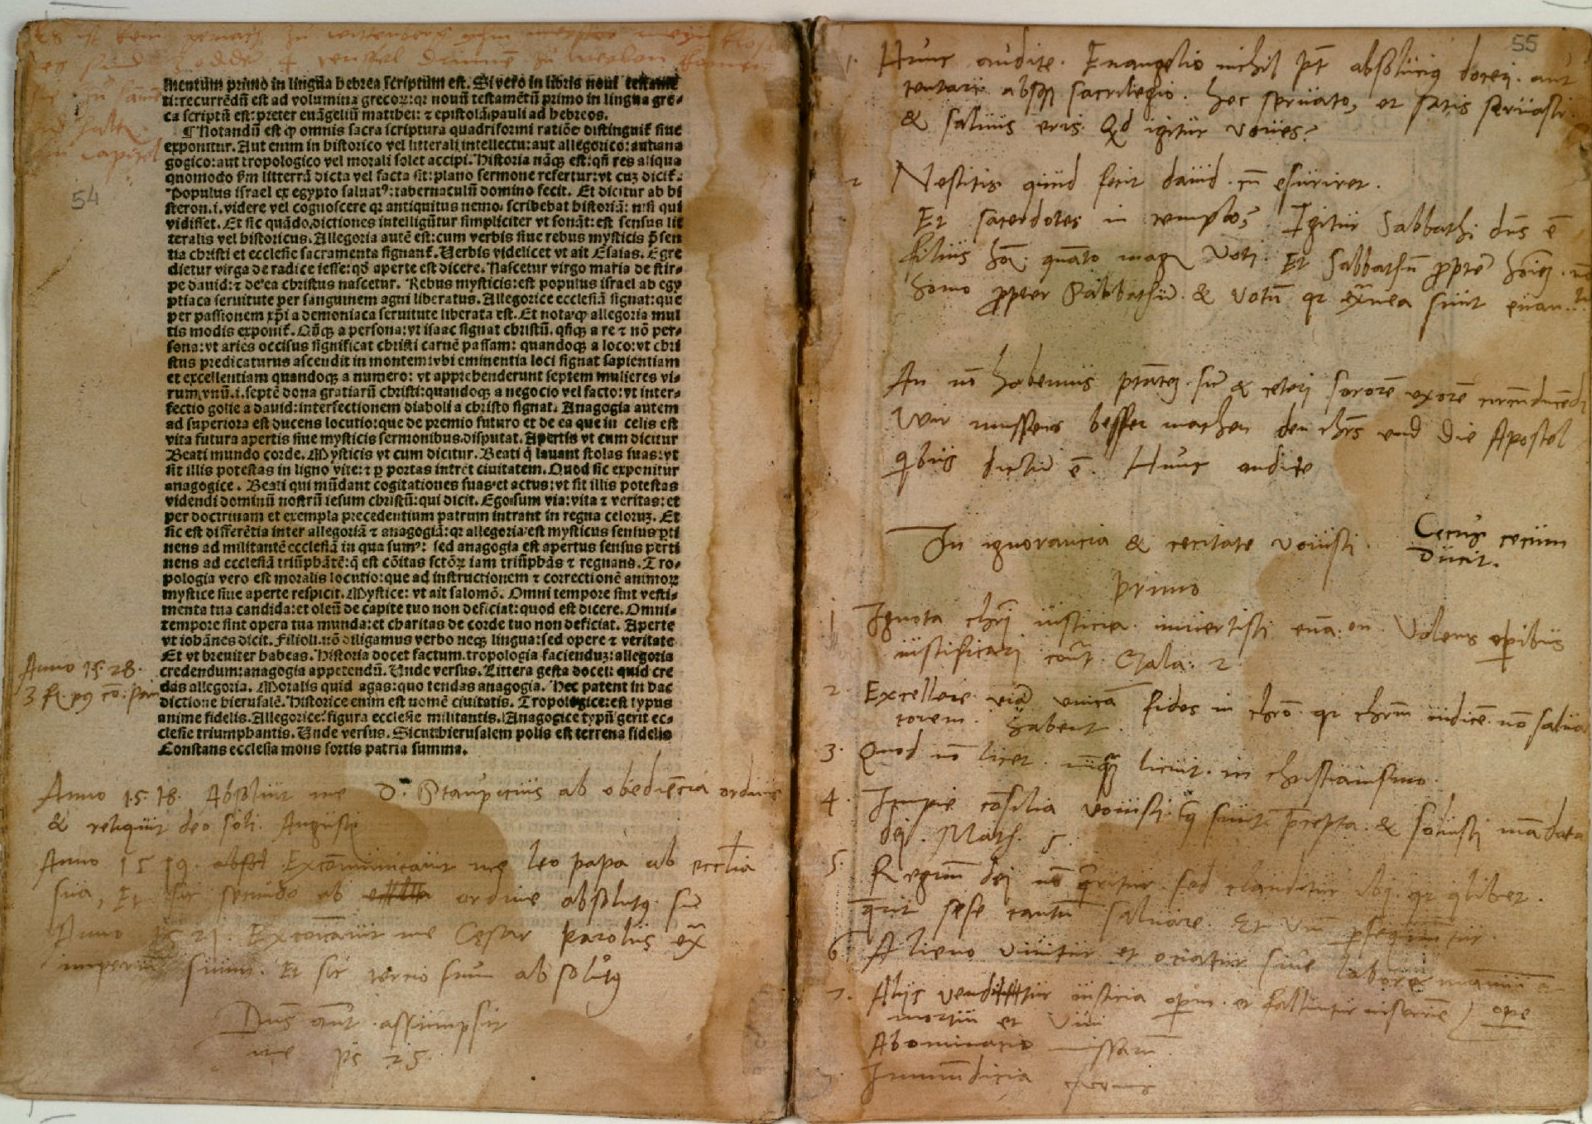 mentum primo in lingua hebrea scriptum est. Si vero in libris noui testamē
ti: recurrēdū est ad volumina grecoꝝ: qꝛ nouū testamētū primo in lingua gre-
ca scriptū est: preter euāgeliū matthei: ⁊ epistolā pauli ad hebreos.
¶ Notandū est ꝙ omnis sacra scriptura quadriformi ratiōe distinguit᷑ siue
exponitur. Aut enim in historico vel litterali intellectu: aut allegorico: aut ana
gogico: aut tropologico vel morali solet accipi. Historia nāqꝫ est: qñ res aliqua
quomodo ẜm litterā dicta vel facta sit: plano sermone refertur: vt cuꝫ dicit᷑.
Populus israel ex egypto saluatꝰ: tabernaculū domino fecit. Et dicitur ab hi
steron .i. videre vel cognoscere qꝛ antiquitus nemo scribebat historiā: nisi qui
vidisset. Et sic quādo dictiones intelligūtur simpliciter vt sonāt: est sensus lit
teralis vel historicus. Allegoria autē est: cum verbis siue rebus mysticis p̄sen
tia christi et ecclesie sacramenta signant᷑. Verbis videlicet vt ait Esaias. Egre
dietur virga de radice iesse: qđ aperte est dicere. Nascetur virgo maria de stir-
pe dauid: ⁊ de ea christus nascetur. Rebus mysticis: est populus israel ab egy
ptiaca seruitute per sanguinem agni liberatus. Allegorice ecclesiā signat: que
per passionem xp̄i a demoniaca seruitute liberata est. Et nota ꝙ allegoria mul
tis modis exponit᷑. Qñqꝫ a persona: vt isaac signat christū. qñqꝫ a re ⁊ nō per-
sona: vt aries occisus significat christi carnē passam: quandoqꝫ a loco: vt chri
stus predicaturus ascendit in montem: vbi eminentia loci signat sapientiam
et excellentiam quandoqꝫ a numero: vt apprehenderunt septem mulieres vi-
rum vnū .i. septē dona gratiarū christi: quandoqꝫ a negocio vel facto: vt inter-
fectio golie a dauid: interfectionem diaboli a christo signat. Anagogia autem
ad superiora est ducens locutio: que de premio futuro et de ea que in celis est
vita futura apertis siue mysticis sermonibus disputat. Apertis vt cum dicitur
Beati mundo corde. Mysticis vt cum dicitur. Beati q̇ lauant stolas suas: vt
sit illis potestas in ligno vite: ⁊ ꝑ portas intrēt ciuitatem. Quod sic exponitur
anagogice. Beati qui mūdant cogitationes suas et actus: vt sit illis potestas
videndi dominū nostrū iesum christū: qui dicit. Ego sum via: vita ⁊ veritas: et
per doctrinam et exempla precedentium patrum intrant in regna celoruꝫ. Et
sic est differētia inter allegoriā ⁊ anagogiā: qꝛ allegoria est mysticus sensus ꝑti
nens ad militantē ecclesiā in qua sumꝰ: sed anagogia est apertus sensus perti
nens ad ecclesiā triūphātē: q̇ est cōitas sctōꝝ iam triūphās ⁊ regnans. Tro-
pologia vero est moralis locutio: que ad instructionem ⁊ correctionē animoꝝ
mystice siue aperte respicit. Mystice: vt ait salomō. Omni tempore sint vesti-
menta tua candida: et oleū de capite tuo non deficiat: quod est dicere. Omni-
tempore sint opera tua munda: et charitas de corde tuo non deficiat. Aperte
vt iohānes dicit. Filioli: nō diligamus verbo neqꝫ lingua: sed opere ⁊ veritate
Et vt breuiter habeas. Historia docet factum. tropologia faciendum: allegoria
credendum: anagogia appetendū. Unde versus. Littera gesta docet: quid cre
das allegoria. Moralis quid agas: quo tendas anagogia. Hec patent in hac
dictione hierusalē. Historice enim est nomē ciuitatis. Tropologice: est typus
anime fidelis. Allegorice: figura ecclesie militantis. Anagogice typū gerit ec-
clesie triumphantis. Unde versus. Sicut hierusalem polis est terrena fidelis
Constans ecclesia mons fortis patria summa.
54
Anno 1528.
Anno 1518. Absoluit me D. Staupicius ab obediēcia ordinis
& reliquit deo soli. Augustę
Anno 1519. Excōmunicauit me leo papa ab ecclīa
sua, Et sic secundo ab ordine absolutꝰ sū
Anno 1521. Excōicauit me Cesar Karolus ex
imperio suum. Et sic tercio sum absolutꝰ
Dns aut assumpsit
me ps 25.
55
1. Hunc audite. Euangelio nichil pt absolucius doceri. aut
tentari absqꝫ sacrilegio. hec seruato, et satis seruasti
& saluus eris. Qd igitur voues?
2 Nescitis quid fecit dauid. cū esuriret.
Et sacerdotes in templo? Igitur Sabbathi dns ē
filius hōi. quāto magꝭ voti. Et Sabbathū propter hōiem. nō
homo propter Sabbathū. & votū
An nō habemus ptātem sororē vxorē circūducēdi
Wir mussens besser machen den chrs vnd die Apostel
qbus dictū ē. Hunc audite
In ignorancia & cecitate vouisti. Cecus cecum
ducit.
primo
1 Ignota chri iusticia. volens opibus
iustificari Gala. 2
2. fides in chrō. qr chrm iudicē. nō salua
torem. habent.
3. Quod nō licet. nūqꝫ licuit. in christianismo.
4. Impie cōsilia vouisti. q̇ sunt p̄cepta. & soluisti mādata
dei. Math. 5.
5. Regnū dei nō q̄ritur. sed clauditur ibi. qr qlibet.
q̄rit sese tantū saluare. Et
6. Alieno viuitur et ociatur sine labore manuū
7. Aliis venditur iusticia opm. et falluntur miserrīe ope
mortui et viui
Abominatio missarū
Immundicia carnis